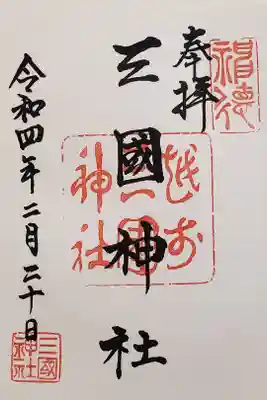 奉拝
三國神社
越前
三國
神社
令和四年二月二十日
三國
神社